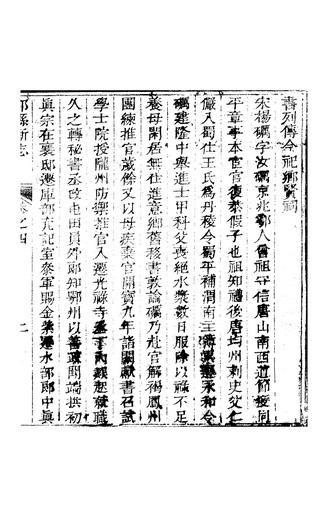 書列傳今祀鄉賢祠
宋楊礪字汝礪京兆鄠人曾祖守信唐山南西道節度同
平章事本宦官復恭假子也祖知禮後唐均州刺史父仁
儼入蜀仕王氏爲丹稜令蜀平補渭南主簿累遷永和令
礪建隆中舉進士甲科父喪絕水漿數日服除以祿不足
養母閑居無仕進意鄉舊移書敦諭礪乃赴官解褐鳳州
團練推官歲餘又以母疾棄官開寶九年詣闕獻書召試
學士院授隴州防禦推官入遷光祿寺丞丁內艱起就職
久之轉秘書丞改屯田員外郎知鄂州以善政聞端拱初
眞宗在襄邸遷庫部充記室參軍賜金紫遷水部郎中眞
鄠縣新志 卷之四 二